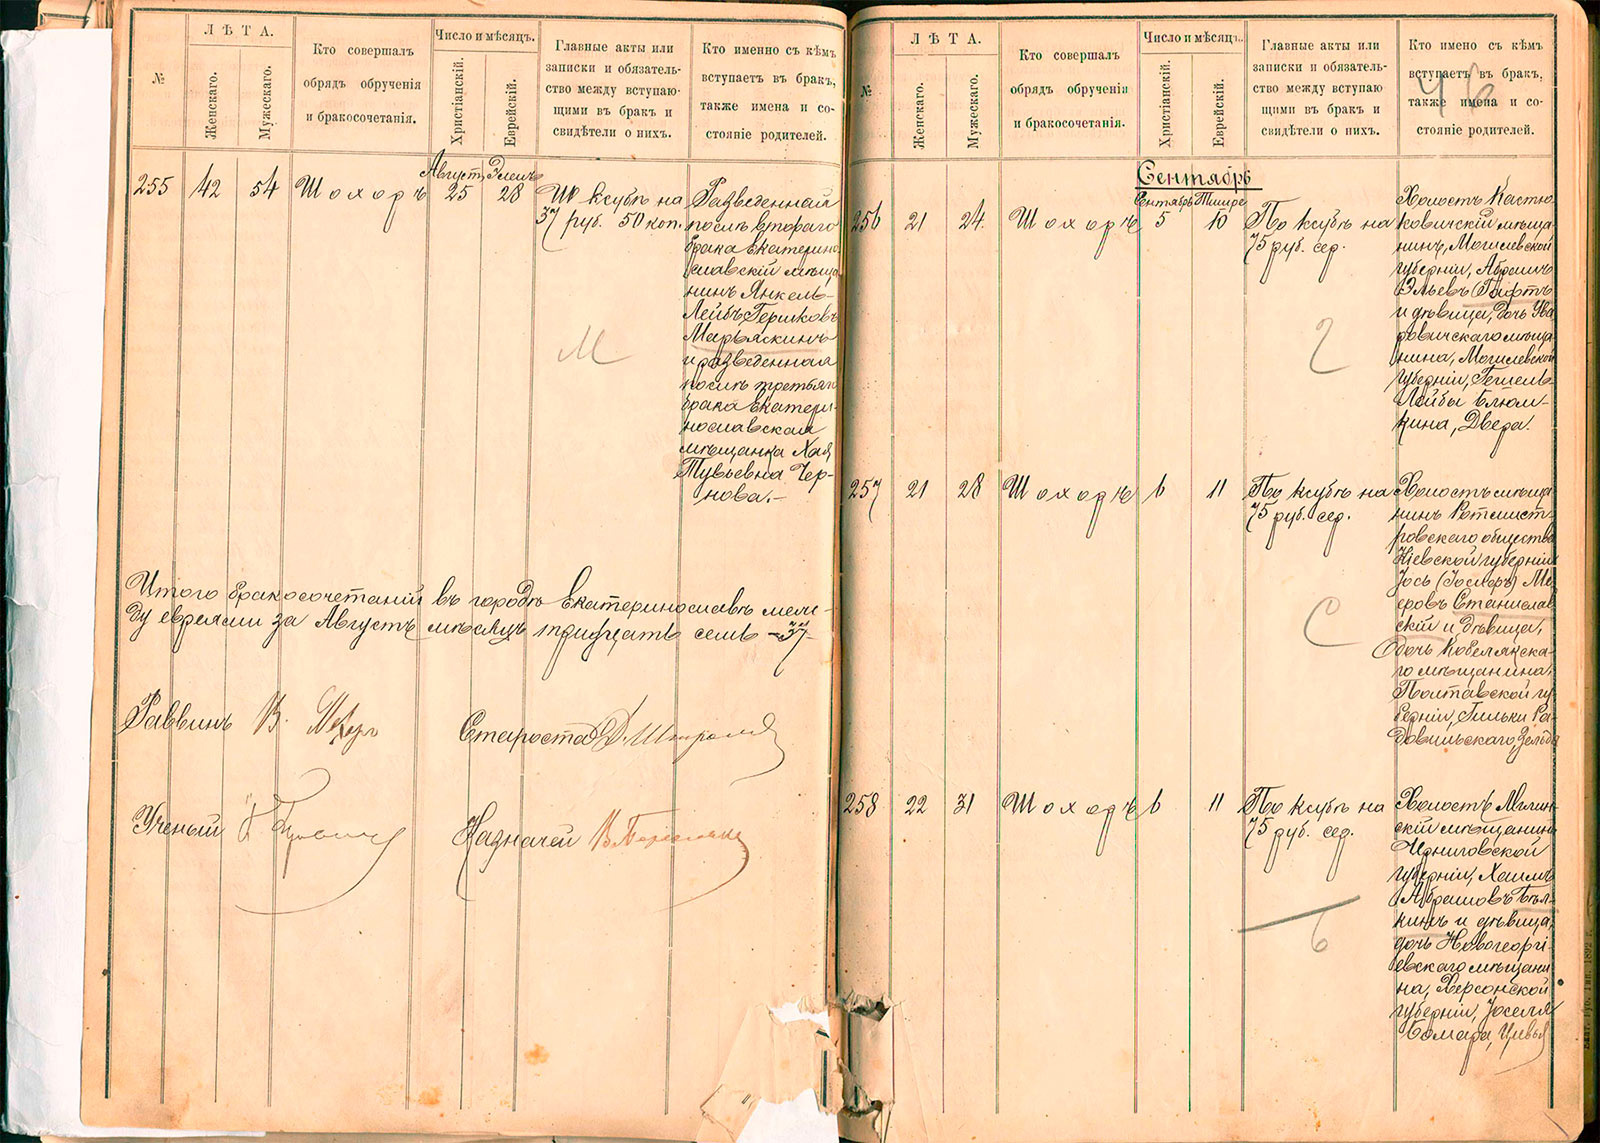 №
ЛѢТА.
Женскаго.
Мужескаго.
Кто совершалъ
обрядъ обрученія
и бракосочетанія.
Число и мѣсяцъ.
Христіанскій.
Еврейскій.
Главные акты или
записки и обязатель-
ство между вступаю-
щими въ бракъ и
свидѣтели о нихъ.
Кто именно съ кѣмъ
вступаетъ въ бракъ,
также имена и со-
стояніе родителей.
255
42
54
Шохоръ
Августъ
25
Элемъ
28
По ксубѣ на
37 руб. 50 коп.
Разведенный
послѣ второго
брака Екатерино
славскій мѣща
нинъ Янкель-
Лейбъ Гершковъ
Марьяскинъ
и разведенная
послѣ третьяго
брака Екатери-
нославская
мѣщанка Хая
Тувьевна Чер-
нова.-
М
Итого бракосочетаній въ городѣ Екатеринославѣ меж-
ду евреями за Августъ мѣсяцъ тридцать семь -37-
Раввинъ В.
Староста Д.
Ученый
Казначей В.
№
ЛѢТА.
Женскаго.
Мужескаго.
Кто совершалъ
обрядъ обрученія
и бракосочетанія.
Число и мѣсяцъ.
Христіанскій.
Еврейскій.
Главные акты или
записки и обязатель-
ство между вступаю
щими въ бракъ и
свидѣтели о нихъ.
Кто имено съ кѣмъ
вступаетъ въ бракъ,
также имена и со-
стояніе родителей.
Сентябрь
256
21
24.
Шохоръ
Сентябрь
5
Тишре
10
По ксубѣ на
75 руб. сер.
Холостъ Кастю
ковичскій мѣща
нинъ, Могилевской
губерніи, Абрамъ
Эльевъ Гифтъ
и дѣвица, дочь Ува
ровичскаго мѣща
нина, Могилевской
губерніи, Гешель-
Лейбы Блюм-
кина, Двера.
Г
257
21
28
Шохоръ
6
11
По ксубѣ на
75 руб. сер.
Холостъ мѣща
нинъ Ротмист
ровскаго общества
Кіевской губерніи
Іось (Іосифъ) Ме
еровъ Станислав
скій и дѣвица,
дочь Кобелякска-
го мѣщанина,
Полтавской гу
берніи, Гильки Ра
довильскаго, Зельда
С
258
22
31
Шохоръ
6
11
По ксубѣ на
75 руб. сер.
Холостъ Мглин
скій мѣщанинъ
Черниговской
губерніи, Хаимъ
Абрамовъ Бѣл-
кинъ и дѣвица,
дочь Новогеоргі-
евскаго мѣщани
на, Херсонской
губерніи, Іоселя
Бомара, Цивья
Б
Екат. Губ. Тип. 1892 г.